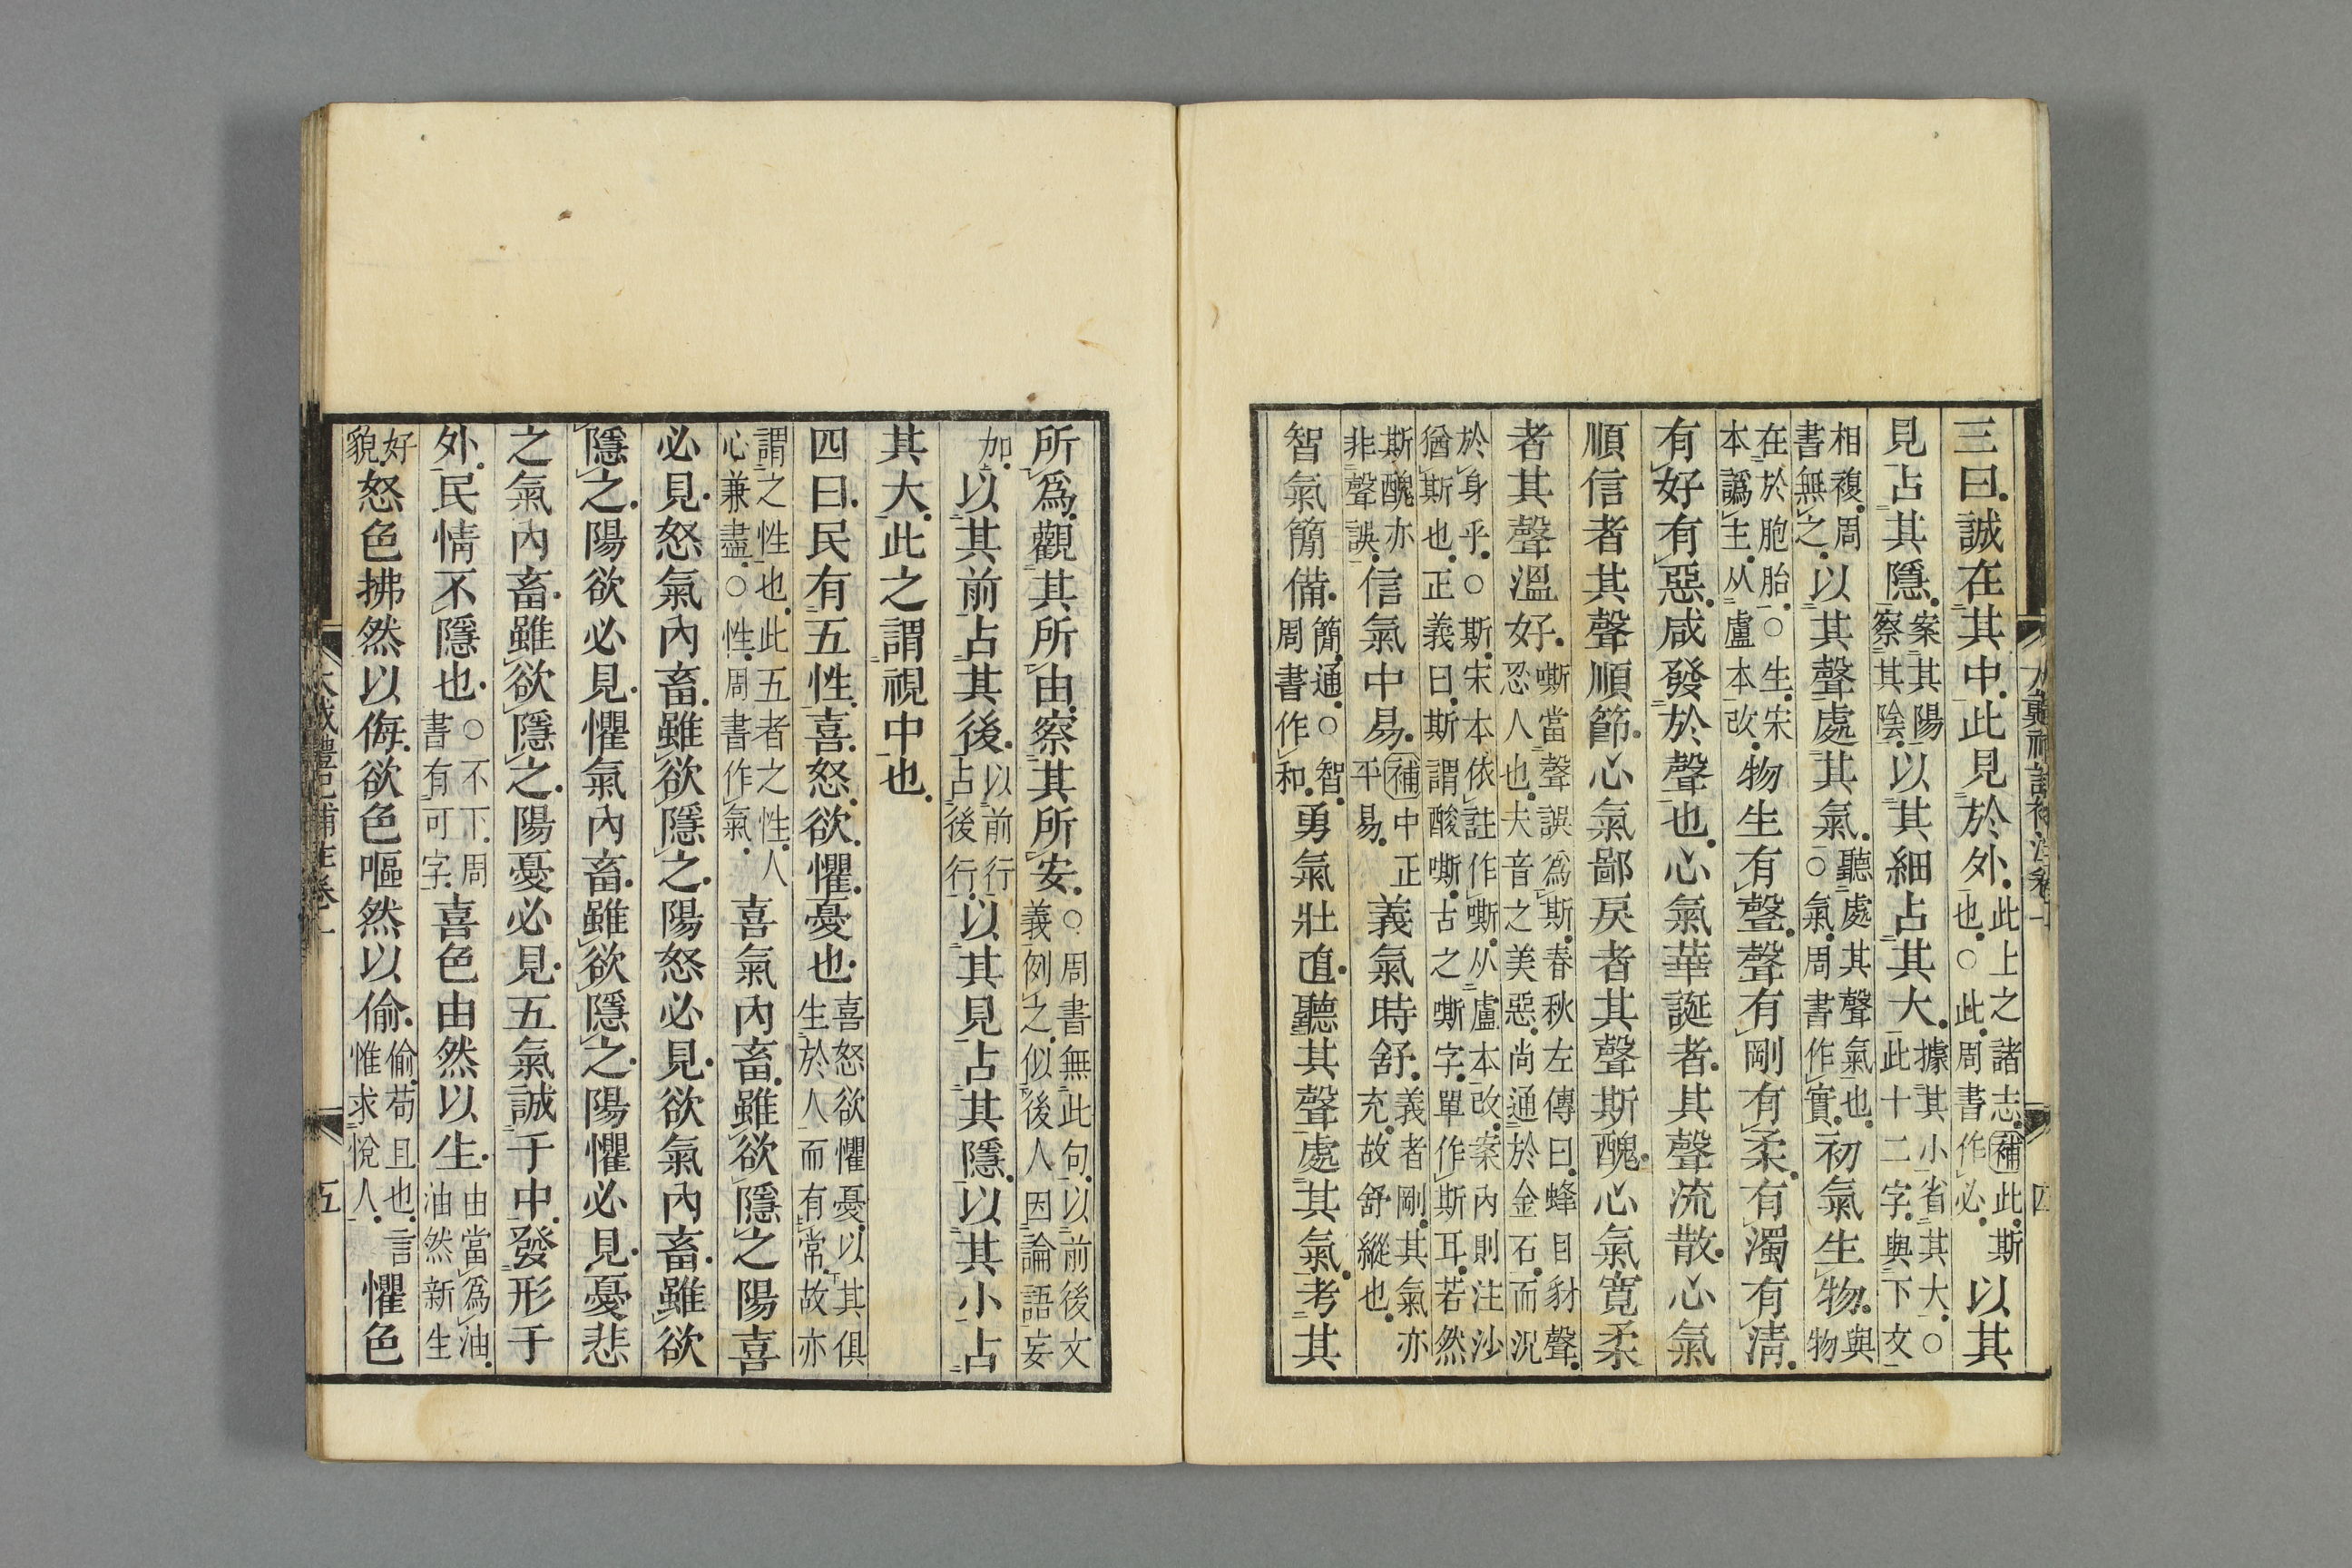 三曰誠在其中此見於外此上之諸志也○此周書作必補此斯以其
見占其隱案其陽察其陰以其細占其大據其小省其大○此十二字與下文
相複周書無之以其聲處其氣聽處其聲氣也○氣周書作實初氣生物與物
在於胞胎○生宋本譌主从盧本改物生有聲聲有剛有柔有濁有清
有好有惡咸發於聲也心氣華誕者其聲流散心氣
順信者其聲順節心氣鄙戾者其聲斯醜心氣寬柔
者其聲溫好嘶當聲誤為斯春秋左傳曰蜂目豺聲忍人也夫音之美惡尚通於金石而況
於身乎○斯宋本依註作嘶从盧本改案內則注沙猶斯也正義曰斯謂酸嘶古之嘶字單作斯耳若然
斯醜亦非聲誤信氣中易補中正平易義氣時舒義者剛其氣亦充故舒縱也
智氣簡備簡通○智周書作和勇氣壯直聽其聲處其氣考其
四
所爲觀其所由察其所安○周書無此句以前後文義例之似後人因論語妄
加以其前占其後以前行占後行以其見占其隱以其小占
其大此之謂視中也
四曰民有五性喜怒欲懼憂也喜怒欲懼憂以其俱生於人而有常故亦
謂之性也此五者之性人心兼盡○性周書作氣喜氣內畜雖欲隱之陽喜
必見怒氣內畜雖欲隱之陽怒必見欲氣內畜雖欲
隱之陽欲必見懼氣內畜雖欲隱之陽懼必見憂悲
之氣內畜雖欲隱之陽憂必見五氣誠于中發形于
外民情不隱也○不下周書有可字喜色由然以生由當爲油油然新生
好貌怒色拂然以侮欲色嘔然以偷偷苟且也言惟求悅人懼色
大戴禮記補注卷十
五